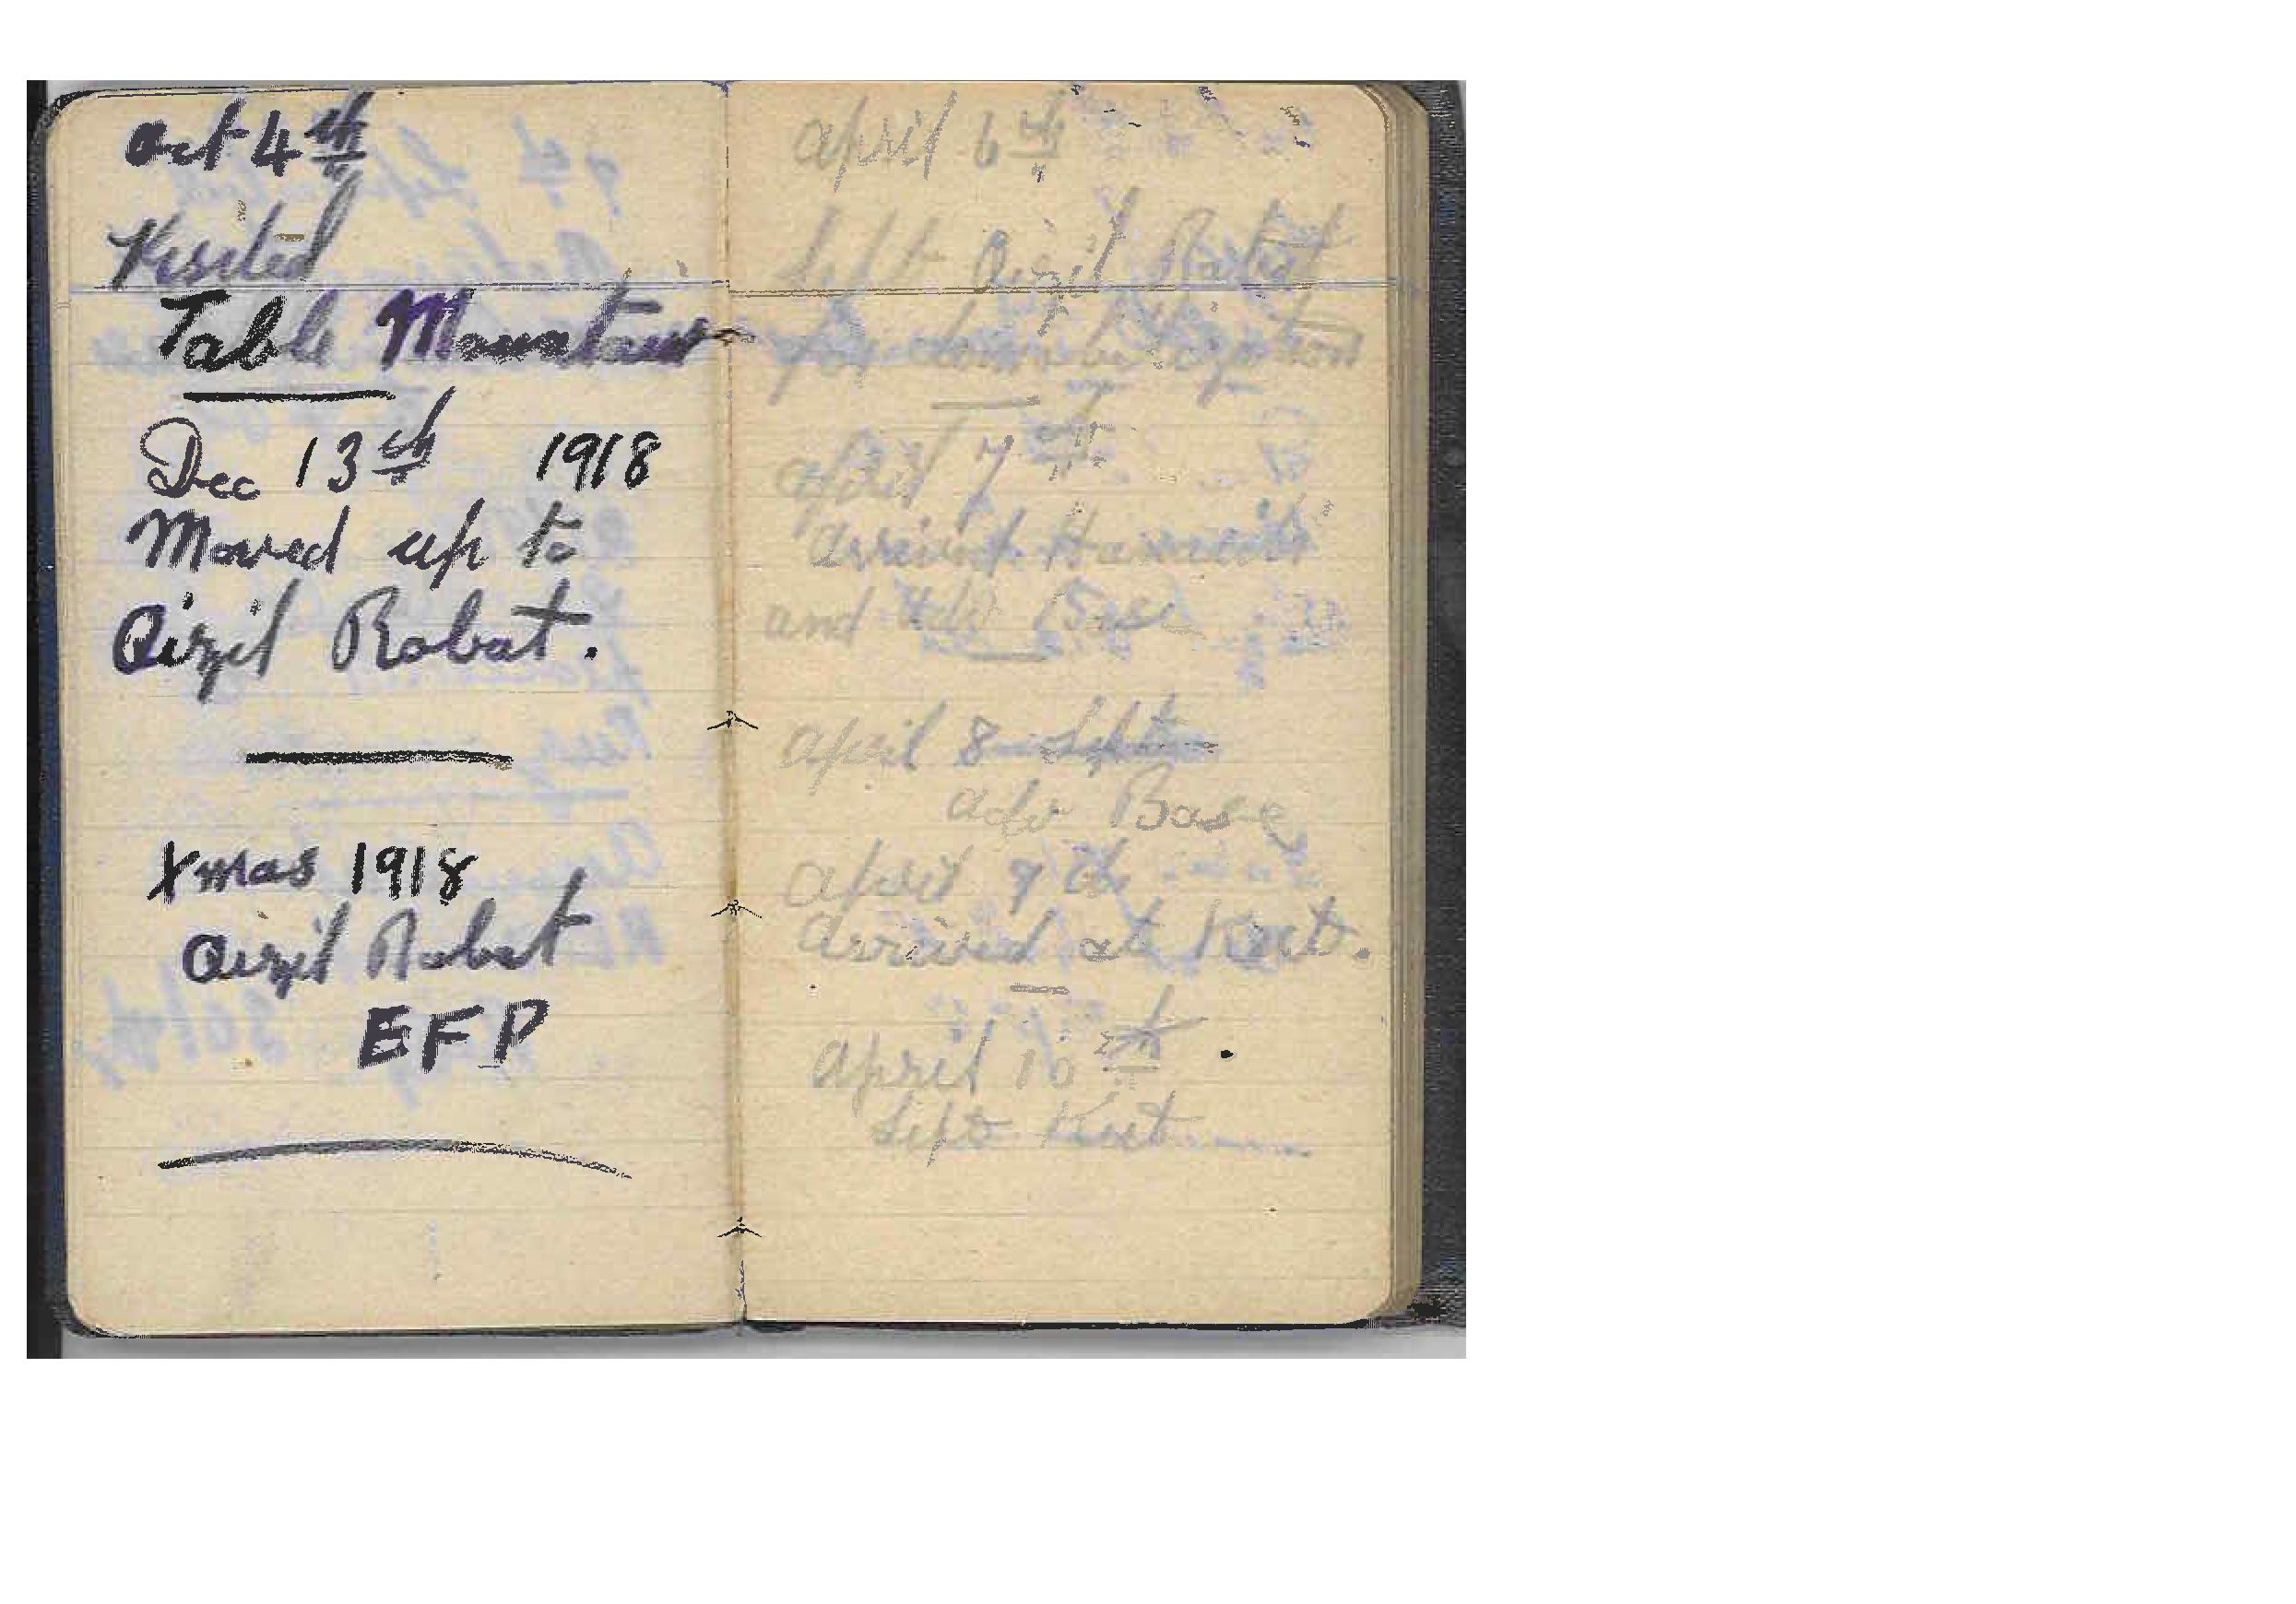 Oct 4th
Visited
Table Mountain
Dec 13th 1918
Moved up to
Qizil Robat.
Xmas 1918
Qizil Robat
EFP
April 6th
Left Qizil Robat
for
April 7th
Arrived
and Adv Base
April 8 Left
adv Base
April 9th
Arrived at Kut.
April 10th
Left Kut